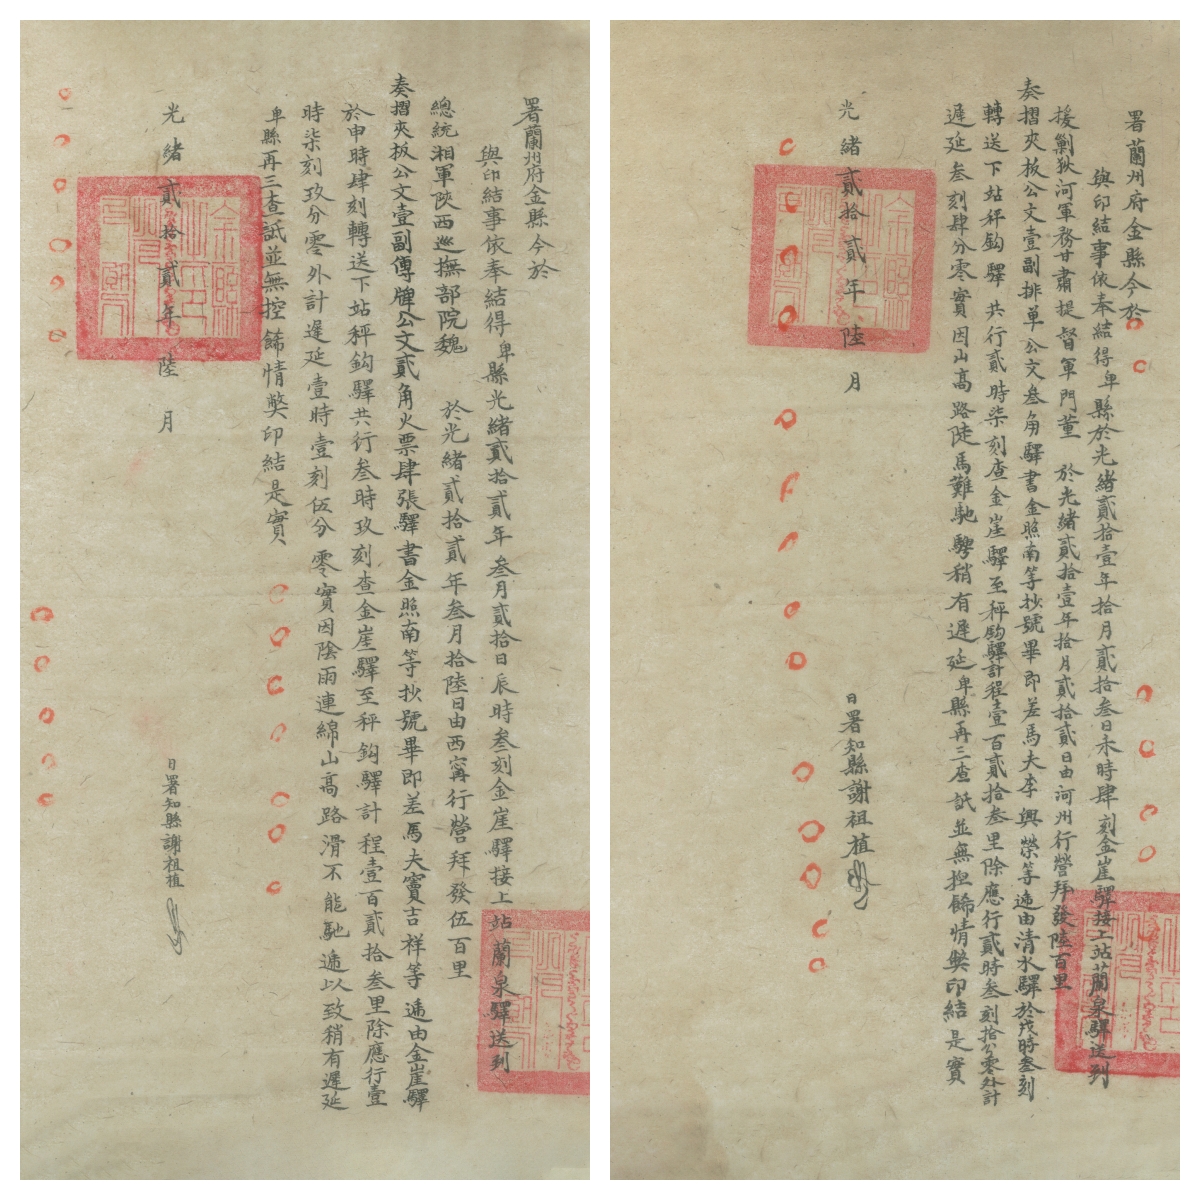 署蘭州府金縣今於
與印結事依奉結得卑縣光緒貳拾貳年叁月貳拾日辰時叁刻金崖驛接上站蘭泉驛送到
總統湘軍陝西巡撫部院魏 於光緒貳拾貳年叁月拾陸日由西寧行營拜發伍百里
奏摺夾板公文壹副傳牌公文貳角火票肆張驛書金照南等抄號畢即差馬夫竇吉祥等遞由金崖驛
於申時肆刻轉送下站秤鈎驛共行叁時玖刻查金崖驛至秤鈎驛計程壹百貳拾叁里除應行壹
時柒刻玖分零外計遲延壹時壹刻伍分零實因陰雨連綿山高路滑不能馳遞以致稍有遲延
卑縣再三查詆並無控餙情弊印結是實
光緒貳拾貳年陸月 日署知縣謝祖植
署蘭州府金縣今於
與印結事依奉結得卑縣於光緒貳拾壹年拾月貳拾叁日未時肆刻金崖驛接上站蘭泉驛送到
援剿狄河軍務甘肅提督軍門董 於光緒貳拾壹年拾月貳拾貳日由河州行營拜發陸百里
奏摺夾板公文壹副排单公文叁角驛書金照南等抄號畢即差馬夫李興榮等遞由清水驛於戌時叁刻
轉送下站秤鈎驛共行貳時柒刻查金崖驛至秤鈎驛計程壹百貳拾叁里除應行貳時叁刻拾分零外計
遲延叁刻肆分零實因山高路陡馬難馳騁稍有遲延卑縣再三查詆並無揑餙情弊印結是實
光緒貳拾貳年陸月 日署知縣謝祖植